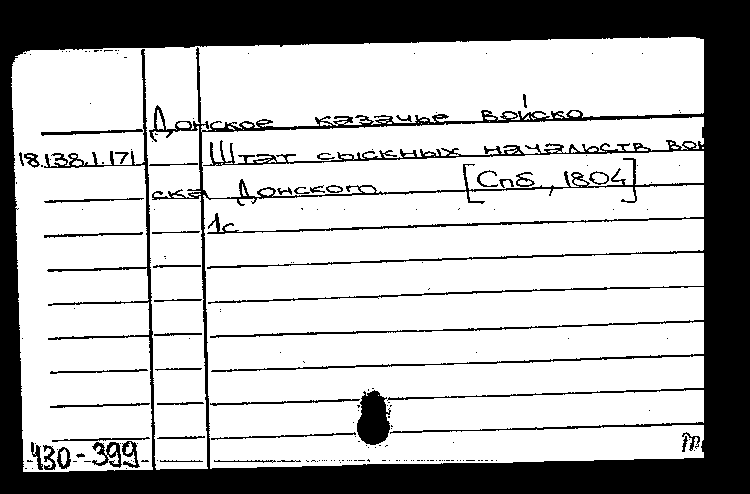 Донское казачье войско
18.138.1.171 Штат сыскных начальств вой
ска Донского [Спб, 1804]
1с
430-399